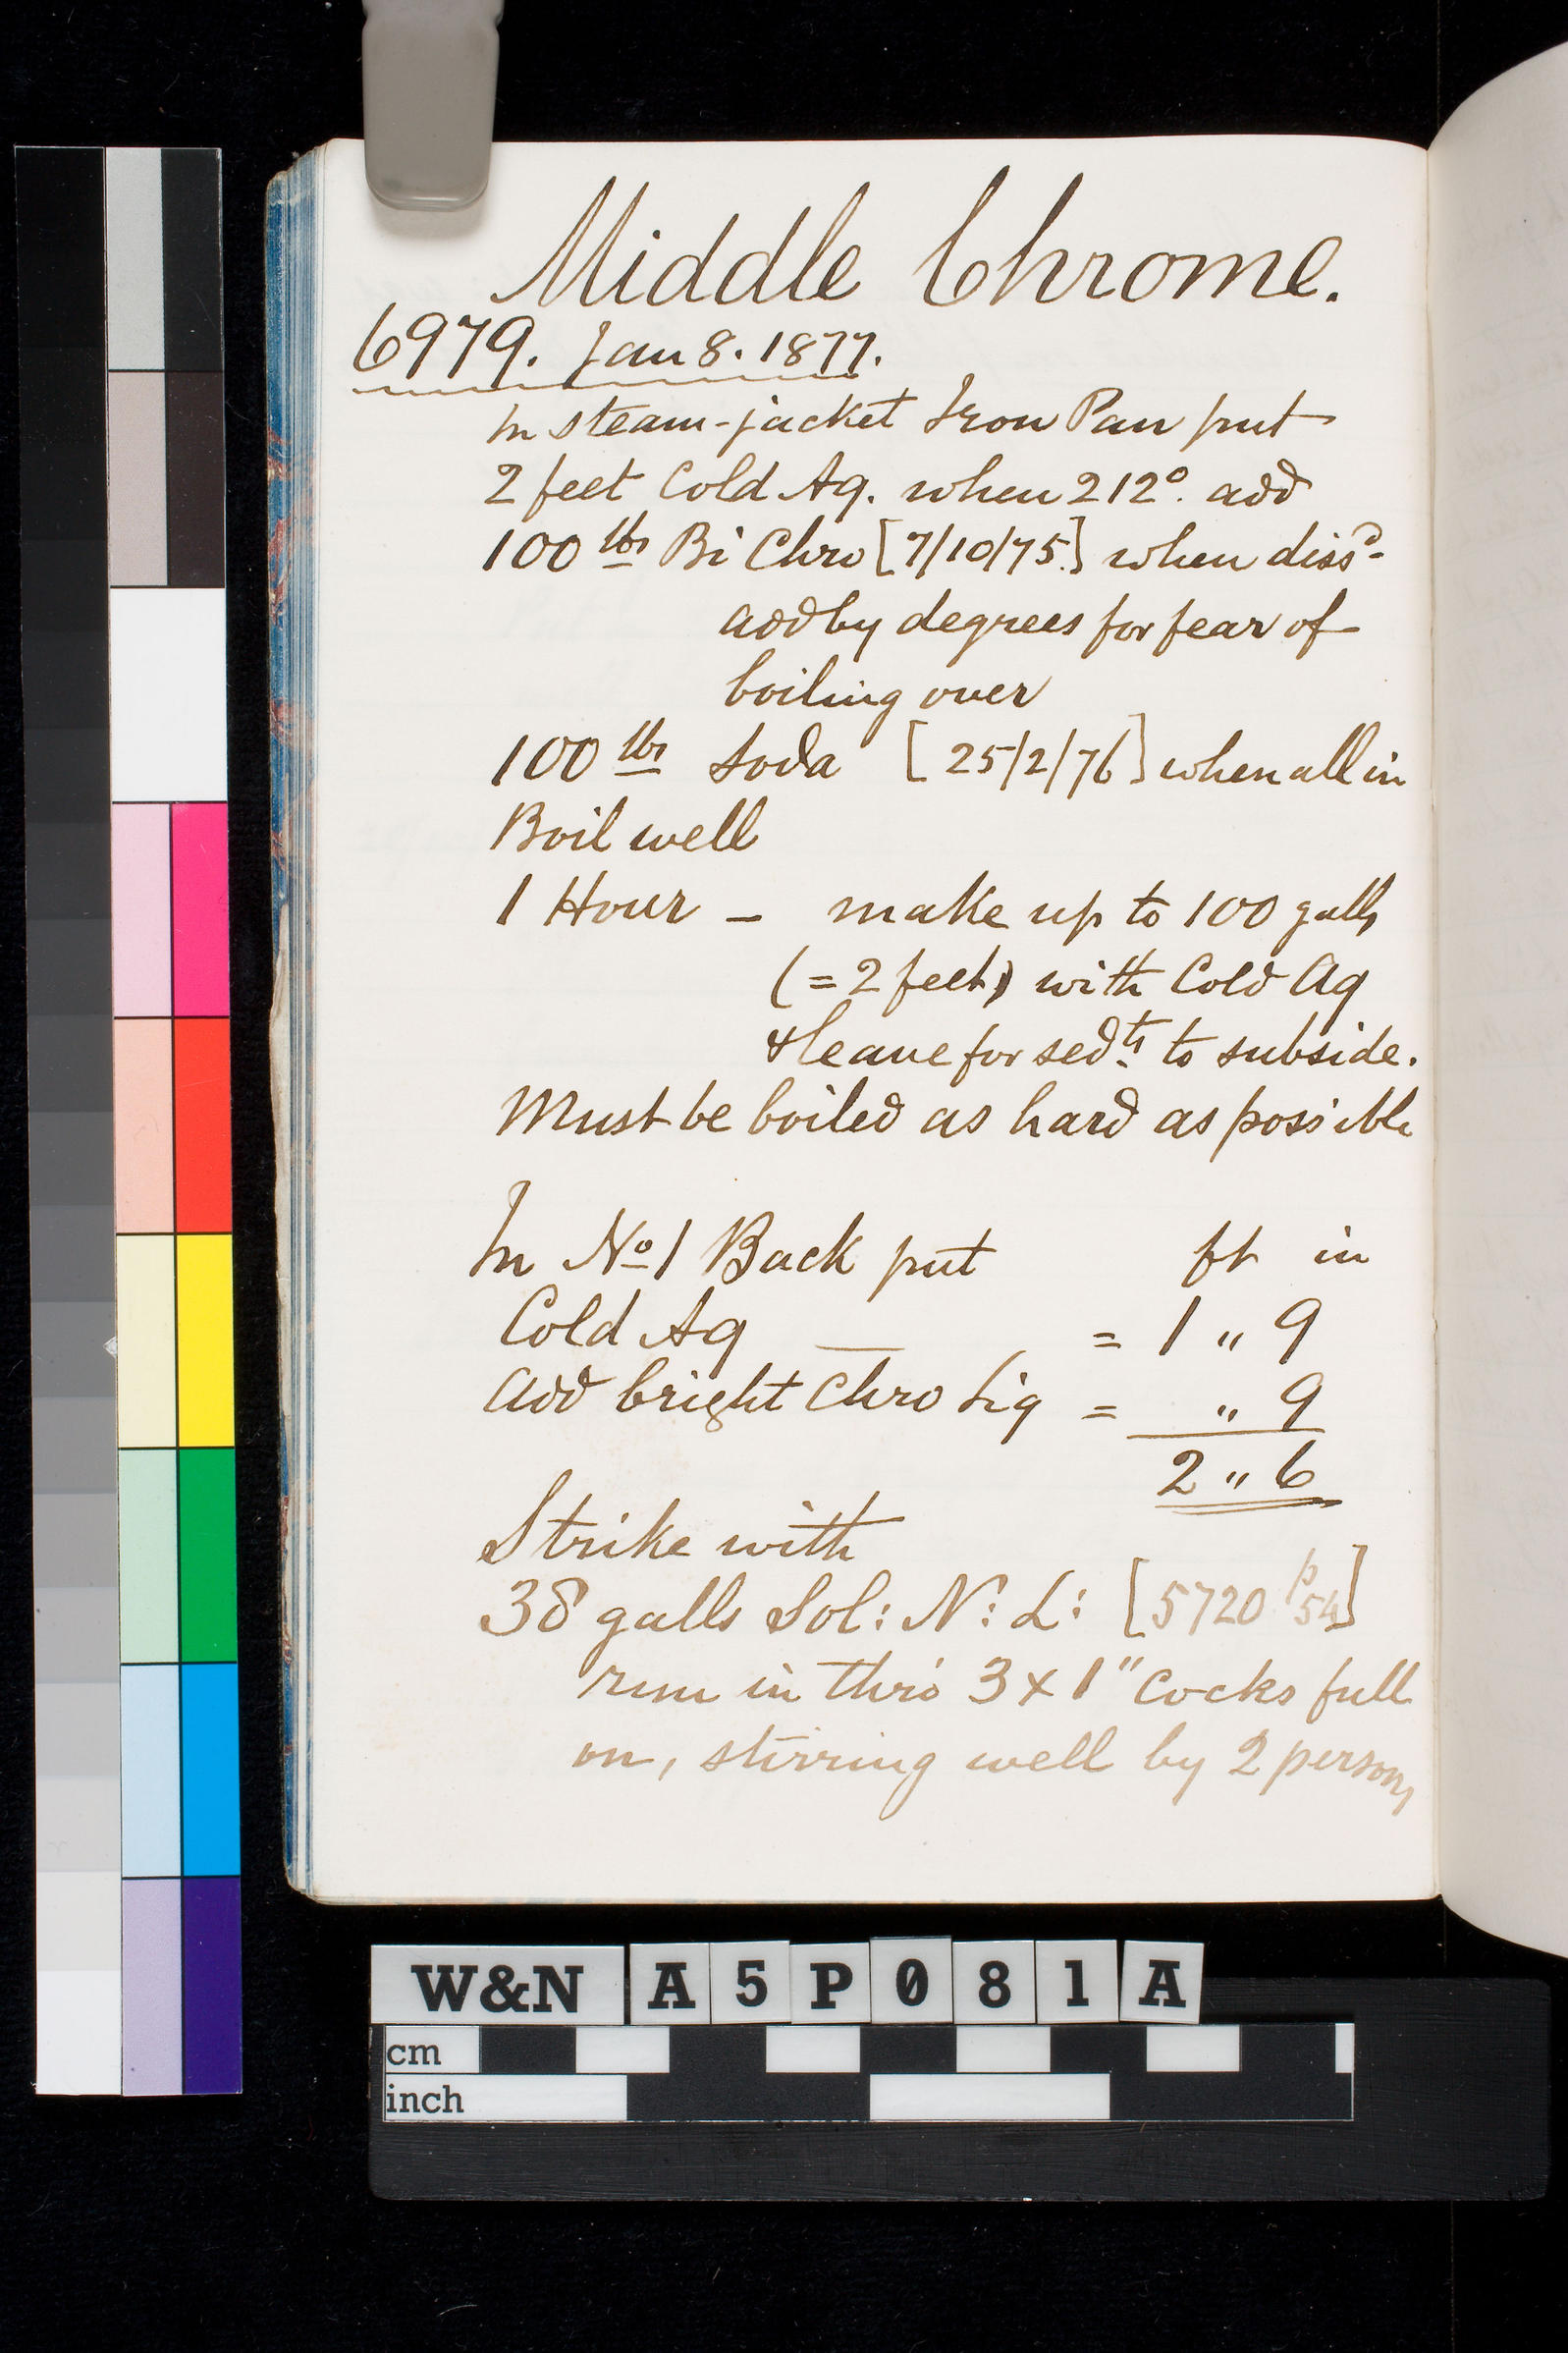 Middle Chrome.
6979. Jan 8. 1877.
In steam-jacket Iron Pan put
2 feet Cold Aq. when 212°. add
100 lbs Bi Chro [7/10/75.] when dissd.
add by degrees for fear of
boiling over
100 lbs Soda [25/2/76] when all in
Boil well
1 Hour – make up to 100 galls
(= 2 feet) with Cold Aq
& leave for sedts. to subside.
Must be boiled as hard as possible
In No 1 Back put ft in
Cold Aq — = 1 " 9
Add bright Chro Liq = " 9
2 " 6
Strike with
38 galls Sol: N: L: [5720 p54]
run in thro' 3 x 1" Cocks full
on, stirring well by 2 persons
W&N A5P081A
cm
inch